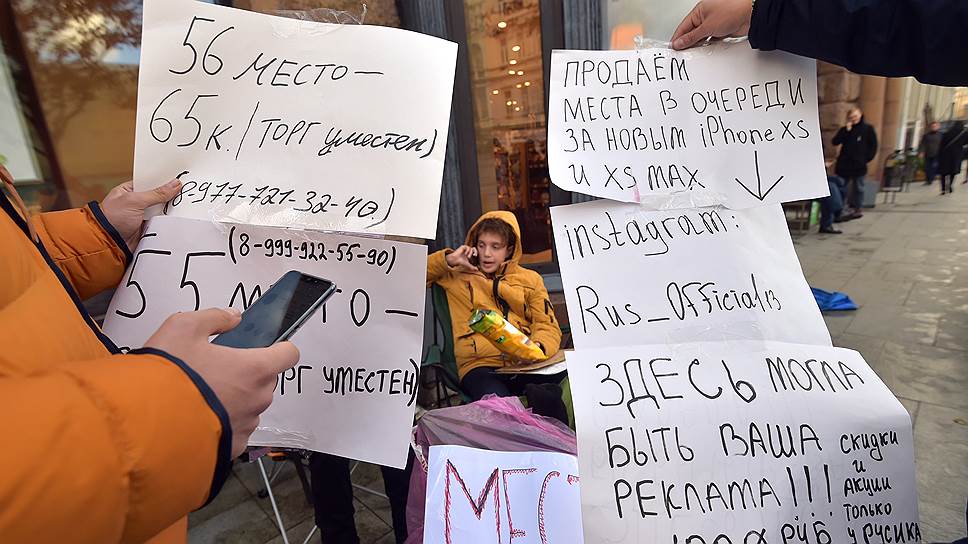 56 МЕСТО –
65к./ТОРГ уместен)
(8-977-721-32-40.)
(8-999-922-55-90)
55 МЕСТО –
ТОРГ УМЕСТЕН)
ПРОДАЁМ
МЕСТА В ОЧЕРЕДИ
ЗА НОВЫМ iPhone XS
И XS MAX
instagram:
Rus_Official13
ЗДЕСЬ МОГЛА
БЫТЬ ВАША
РЕКЛАМА!!!
РУБ
СКИДКИ
И
АКЦИИ
ТОЛЬКО
У РУСИКА
МЕС